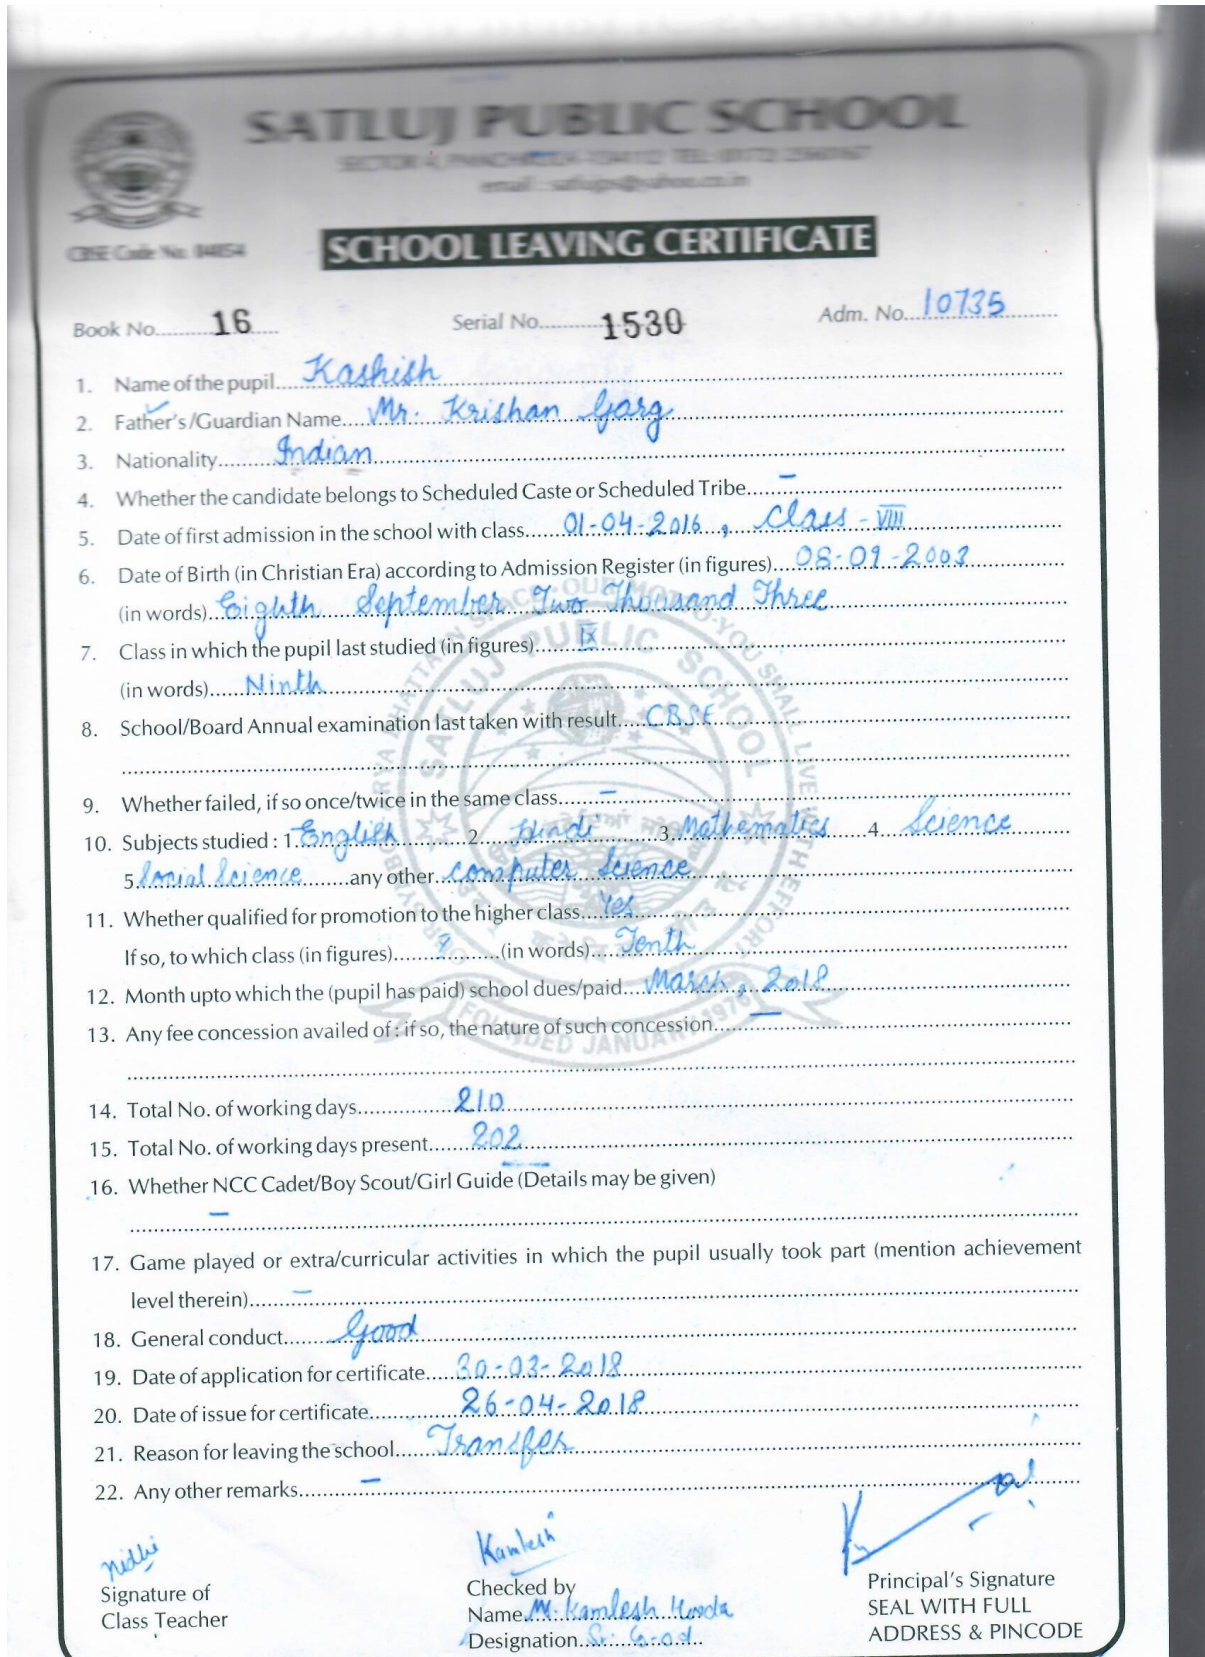 SATLUJ PUBLIC SCHOOL
SECTOR 4, PANCHKULA -134112 TEL: (0172) 2560167
email : satlujps@yahoo.co.in
CBSE Code No. 04054
SCHOOL LEAVING CERTIFICATE
Book No.......... 16 Serial No........... 1530 Adm. No... 10735
1. Name of the pupil.... Kashish
2. Father's/Guardian Name.... Mr. Krishan Garg
3. Nationality......... Indian
4. Whether the candidate belongs to Scheduled Caste or Scheduled Tribe..... –
5. Date of first admission in the school with class...... 01-04-2016 , Class - VIII
6. Date of Birth (in Christian Era) according to Admission Register (in figures).... 08-09-2003
(in words). Eighth September Two Thousand Three
7. Class in which the pupil last studied (in figures)....... IX
(in words)...... Ninth
8. School/Board Annual examination last taken with result.... CBSE
9. Whether failed, if so once/twice in the same class....... –
10. Subjects studied : 1. English 2. Hindi 3. Mathematics 4. Science
5. Social Science any other. Computer Science
11. Whether qualified for promotion to the higher class.... Yes
If so, to which class (in figures)....... (in words).... Tenth
12. Month upto which the (pupil has paid) school dues/paid.... March , 2018
13. Any fee concession availed of : if so, the nature of such concession..... –
14. Total No. of working days............... 210
15. Total No. of working days present....... 202
16. Whether NCC Cadet/Boy Scout/Girl Guide (Details may be given)
–
17. Game played or extra/curricular activities in which the pupil usually took part (mention achievement
level therein)....... –
18. General conduct........ Good
19. Date of application for certificate..... 30-03-2018
20. Date of issue for certificate............... 26-04-2018
21. Reason for leaving the school...... Transfer
22. Any other remarks.......... –
Nidhi Kamlesh
Signature of Checked by Principal's Signature
Class Teacher Name. Kamlesh Hooda SEAL WITH FULL
Designation.... ADDRESS & PINCODE
SATLUJ PUBLIC SCHOOL
FOUNDED JANUARY 1976